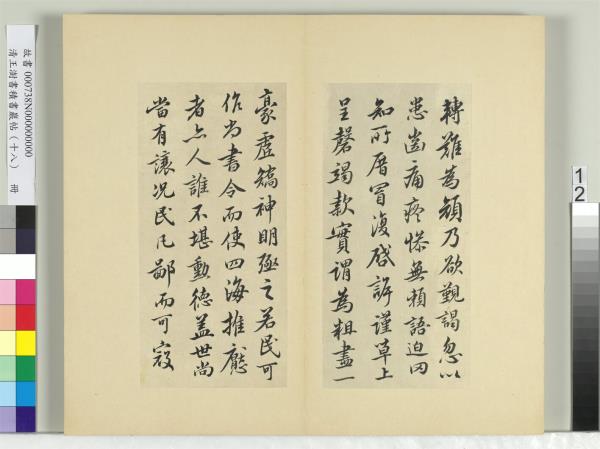 轉難為顏乃欲覲謁忽以
患齒痛疼慘無賴語迫罔
知所厝冒復啓訴謹草上
呈磬竭款實謂為粗盡一
豪虛矯神明殛之若民可
作尚書令而使四海推
者亦人誰不堪勳德蓋世尚
當有讓況民凡鄙而可
故書 000738N000000000
清王澍書積書巖帖（十八） 冊
1
2